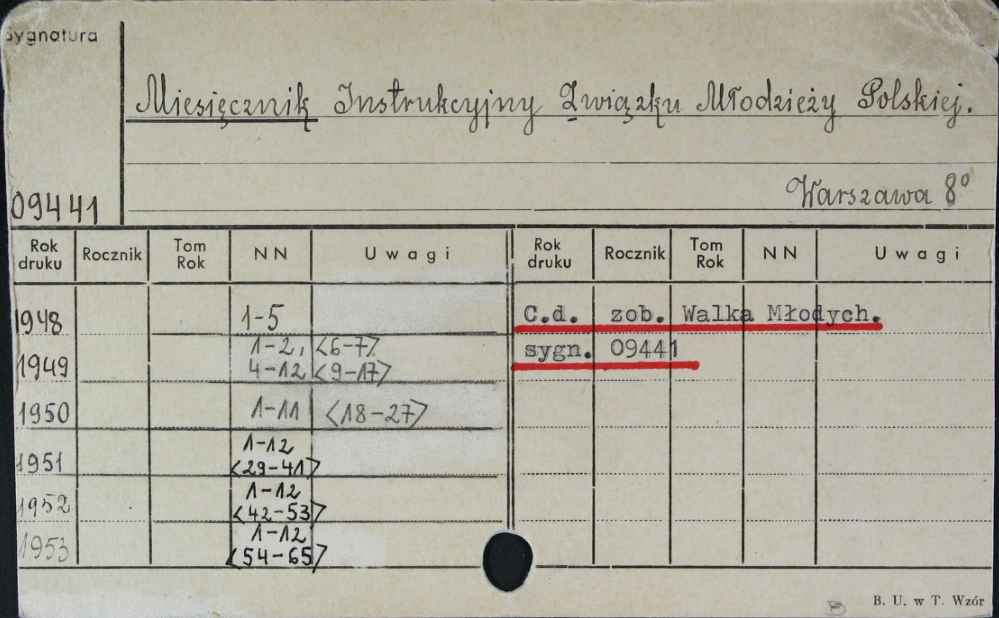 Sygnatura
Miesięcznik Instrukcyjny Związku Młodzieży Polskiej.
Warszawa 8°
09441
Rok druku Rocznik Tom Rok NN Uwagi Rok druku Rocznik Tom Rok NN Uwagi
1948 1-5
1949 1-2, <6-7>
4-12 <9-17>
1950 1-11 <18-27>
1951 1-12
<29-41>
1952 1-12
<42-53>
1953 1-12
<54-65>
C.d. zob. Walka Młodych.
sygn. 09441
B. U. w T. Wzór